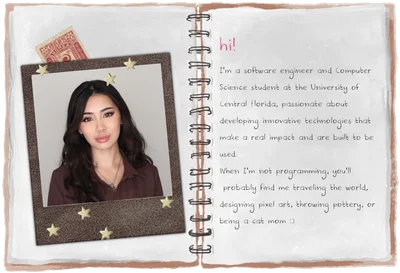 hi!
I'm a software engineer and Computer
Science student at the University of
Central Florida, passionate about
developing innovative technologies that
make a real impact and are built to be
used.
When I'm not programming, you'll
probably find me traveling the world,
designing pixel art, throwing pottery, or
being a cat mom :)